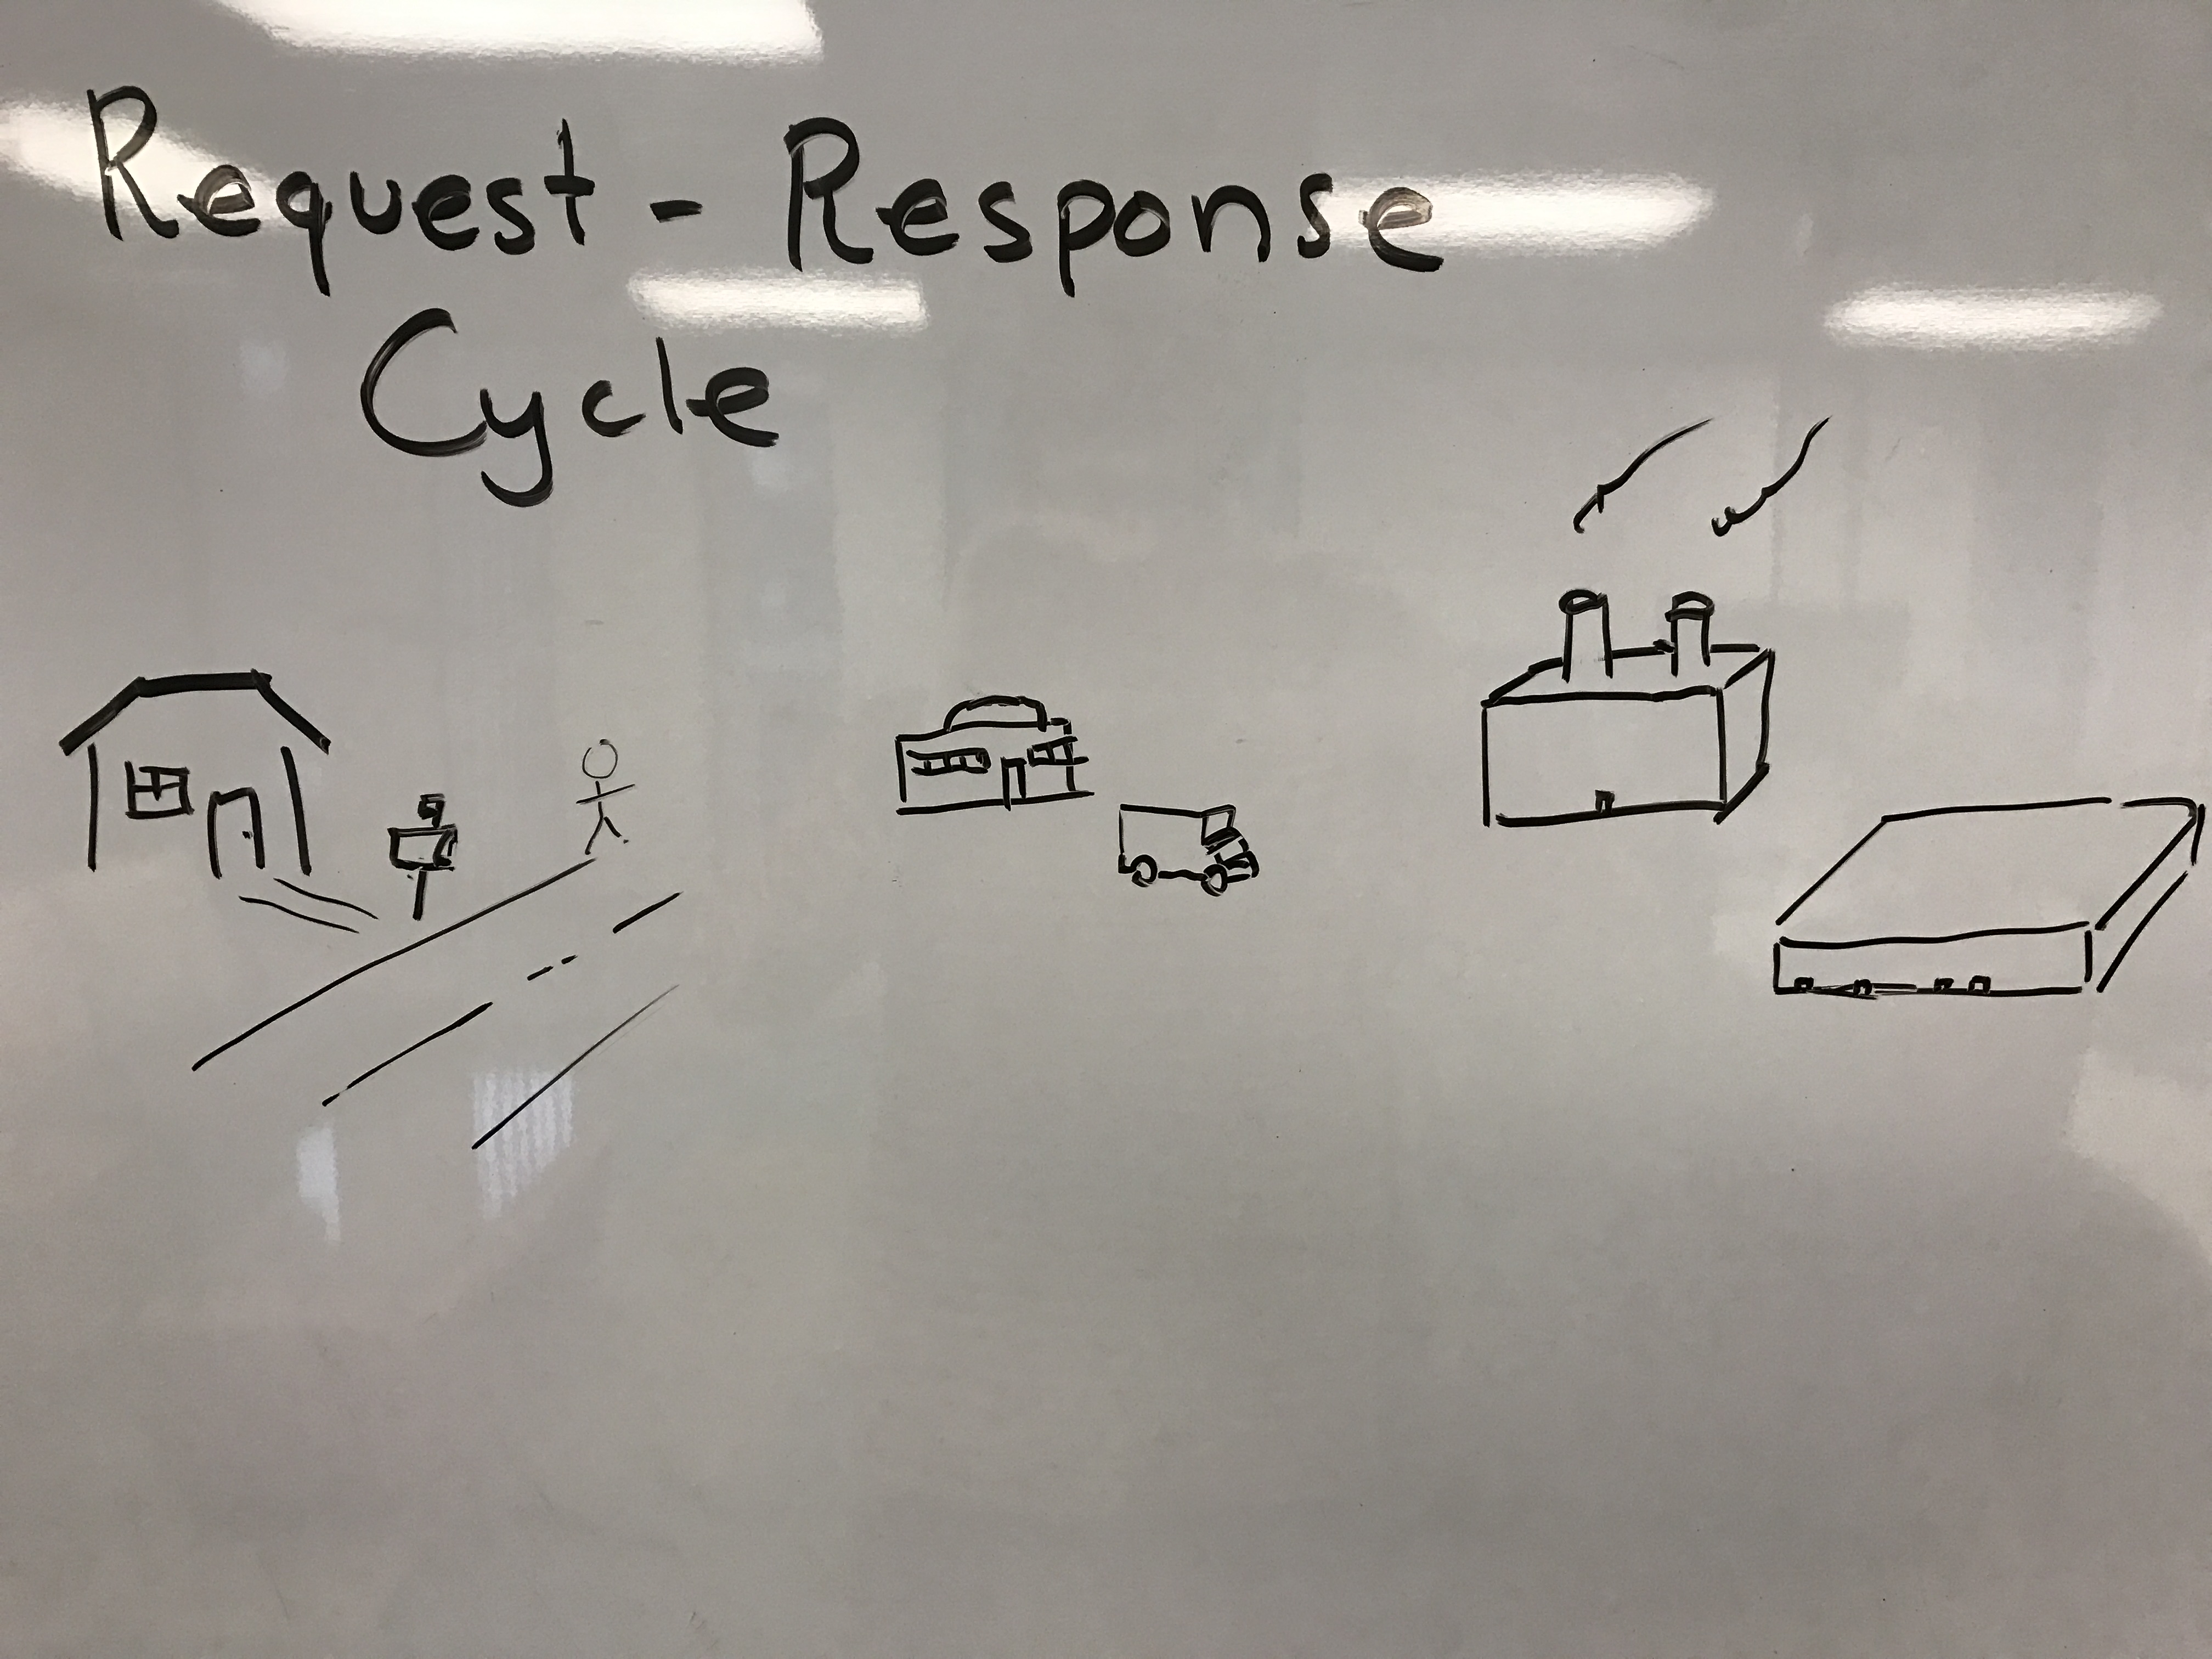 Request - Response
Cycle